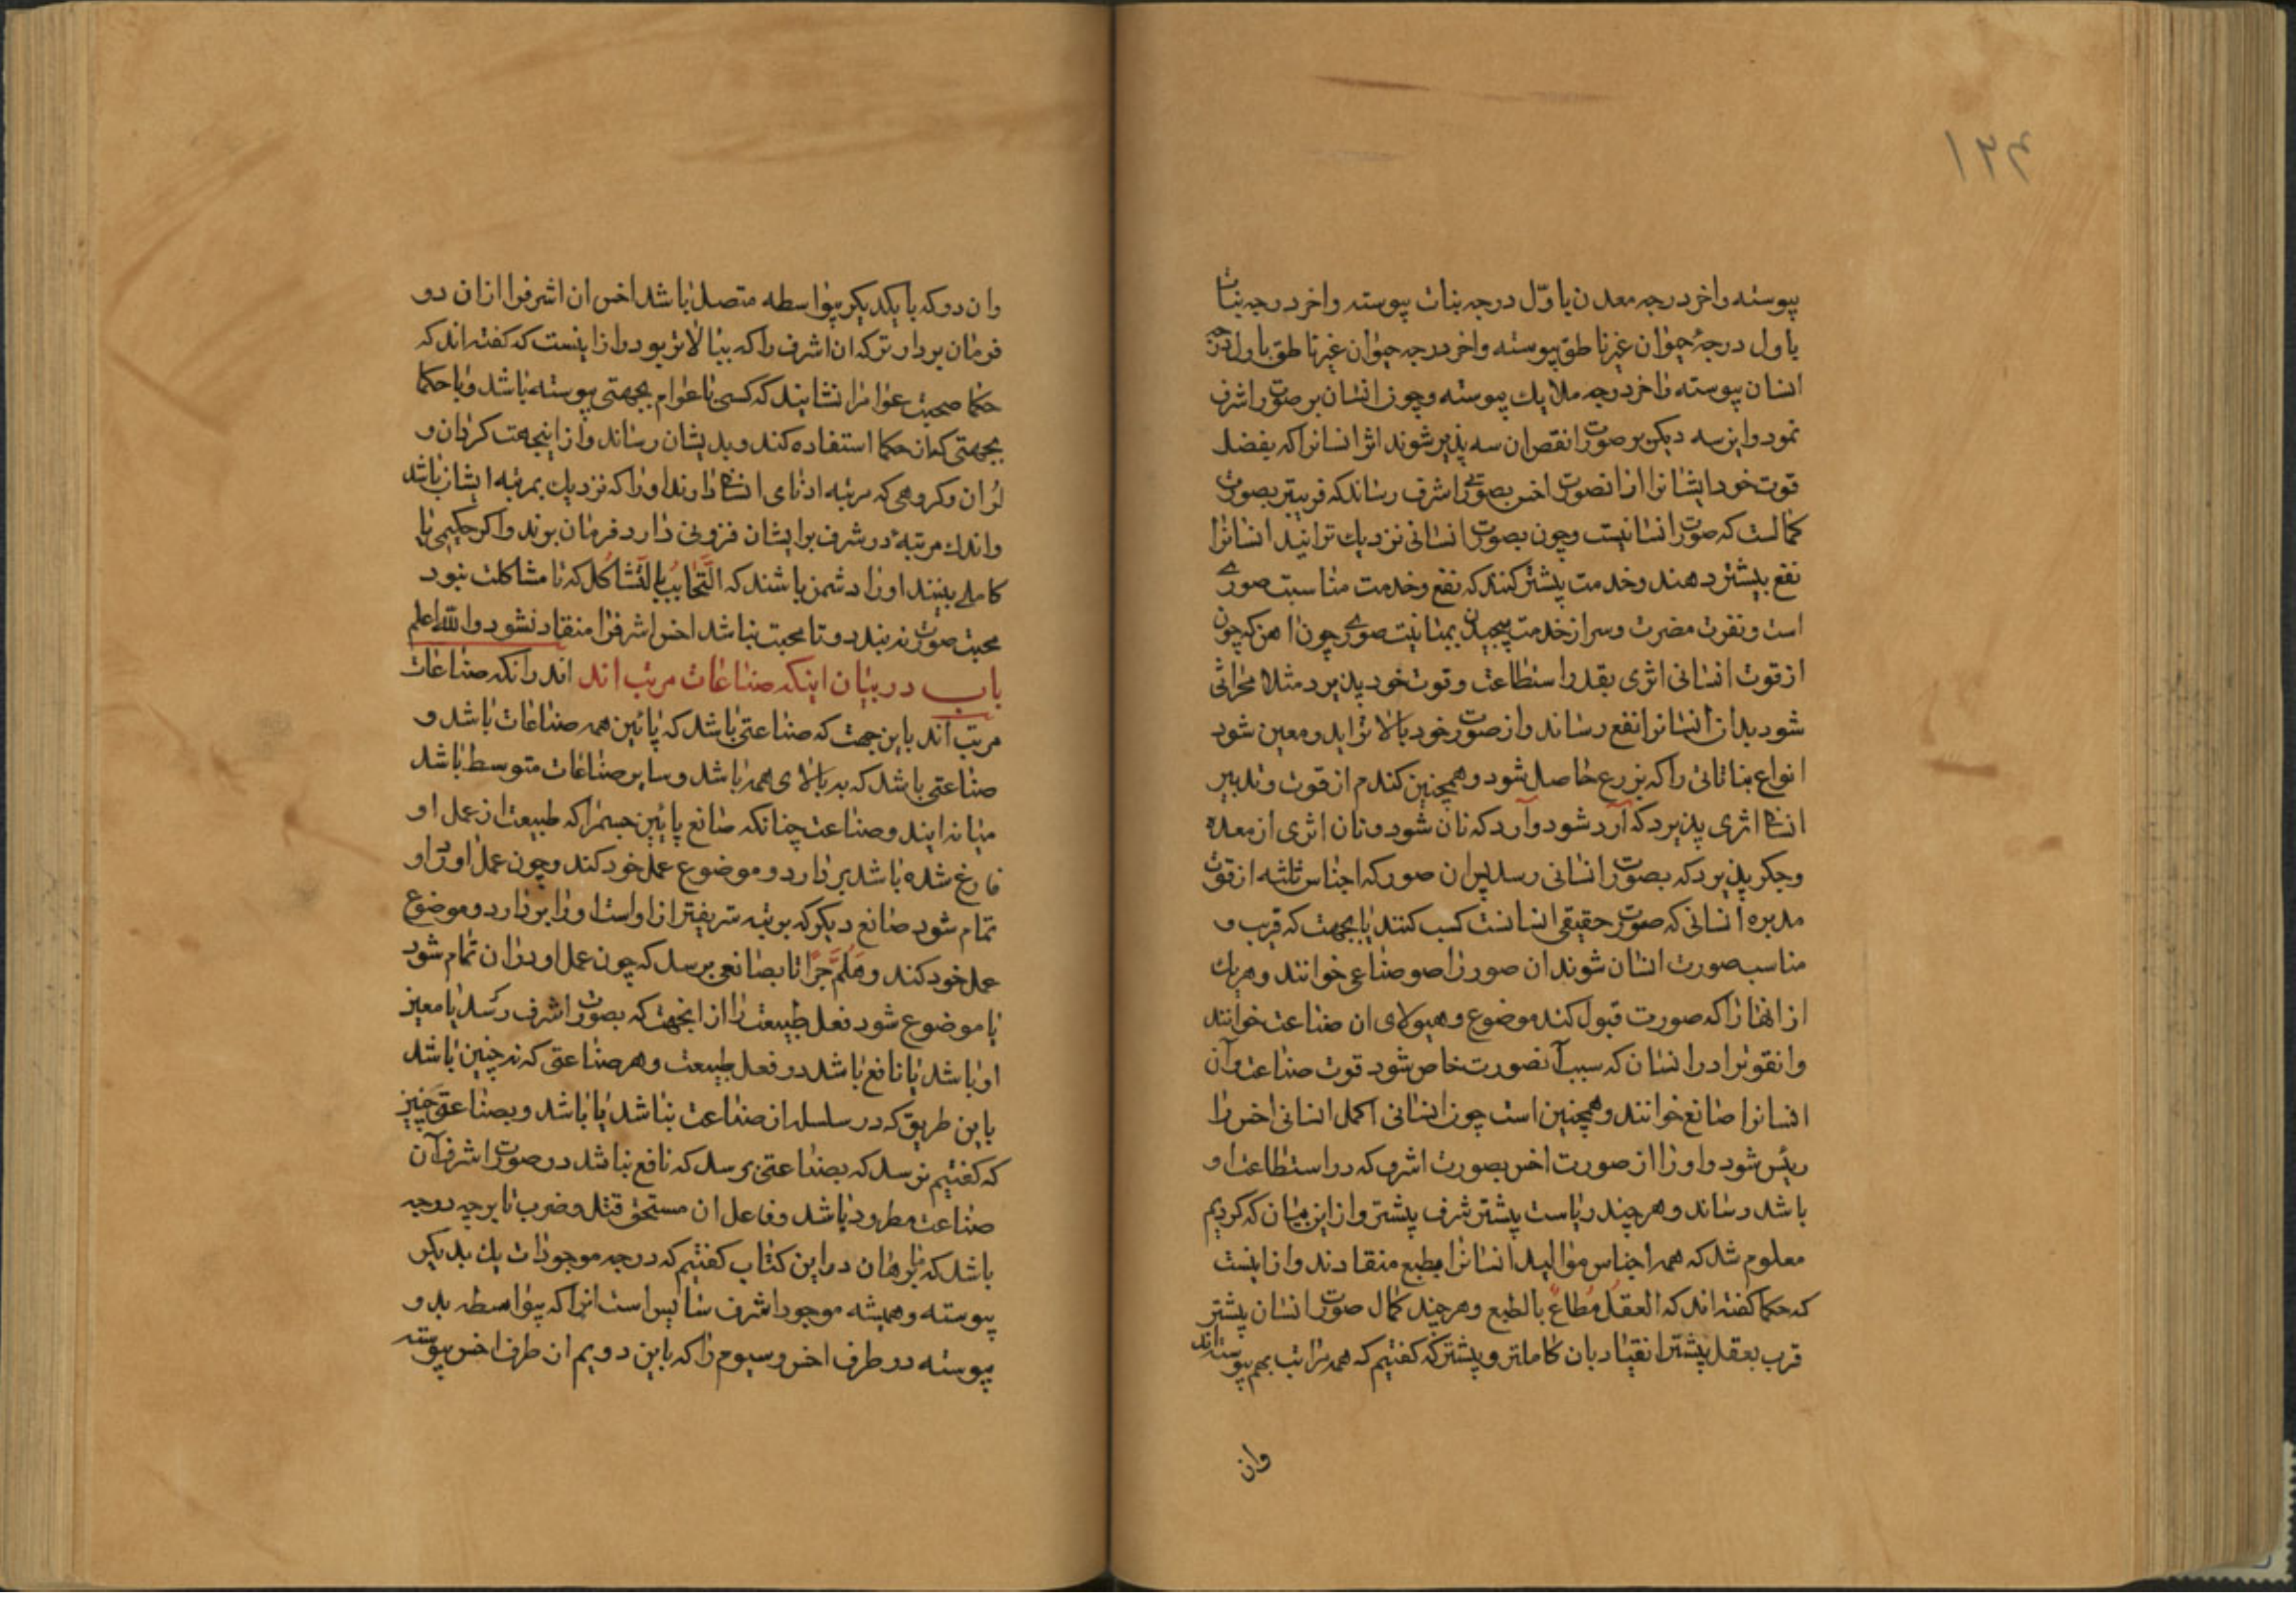 ۱۲۴
پیوسته واخر درجه معدن باوّل درجه نبات پیوسته واخر درجه نبات
باول درجهٔ حیوان غیر ناطق پیوسته واخر درجه حیوان غیر ناطق باول درجه
انسان پیوسته واخر درجه ملایك پیوسته وچون انسان بر صورت اشرف
نمود واین سه دیکر بر صورت انقص ان سه پذیر شوند اثر انسانرا که بفضل
قوت خود ایشانرا از انصورت اخس بصورتی اشرف رساند که قریبتر بصورت
کمالست که صورت انسانیست وچون بصورت انسانی نزدیك تر ایند انسانرا
نفع بیشتر دهند وخدمت بیشتر کنند که نفع وخدمت مناسبت صوری
است ونفرت مضرت وسر از خدمت پیچیدن بمباینت صوری چون اهن که چون
از قوت انسانی اثری بقدر استطاعت وقوت خود پذیرد مثلا محراثی
شود بدان انسانرا نفع رساند واز صورت خود بالاتر اید ومعین شود
انواع نباتاتی را که بزرع حاصل شود وهمچنین کندم از قوت وتدبیر
انسانی اثری پذیرد که آرد شود وآرد که نان شود ونان اثری از معده
وجکر پذیرد که بصورت انسانی رسد پس ان صور که اجناس ثلثه از قوت
مدبره انسانی که صورت حقیقی انسانست کسب کنند یا بجهت که قریب و
مناسب صورت انسان شوند ان صور را صور صناعی خوانند وهریك
از انها را که صورت قبول کند موضوع وهیولای ان صناعت خوانند
وانقوترا در انسان که سبب آنصورت خاص شود قوت صناعت وآن
انسانرا صانع خوانند وهمچنین است چون انسانی اکمل انسانی اخس را
رئیس شود واو را از صورت اخس بصورت اشرف که در استطاعت او
باشد رساند وهرچند ریاست بیشتر شرف بیشتر واز این بیان که کردیم
معلوم شد که همه اجناس موالید انسانرا بطبع منقادند واز اینست
که حکما کفته اند که العقلُ مُطاعٌ بالطبع وهرچند کمال صورت انسان بیشتر
قرب بعقل بیشتر انقیاد بان کاملتر وبیشتر که کفتیم که همه مراتب بهم پیوسته اند
وان
وان دو که با یکدیکر بیواسطه متصل باشد اخس ان اشرفرا ازان دو
فرمان بردار تر که ان اشرف را که ببالاتر بود واز اینست که کفته اند که
حکما صحبت عوامرا نشایند که کسی با عوام بجهتی پیوسته باشد وبا حکما
بجهتی که از حکما استفاده کند وبدیشان رساند واز اینجهت کردان و
لُران وکروهی که مرتبه ادنای انسانی دارند او را که نزدیك بمرتبه ایشان باشد
واندك مرتبهٔ در شرف بر ایشان فزونی دارد فرمان بوند واکر حکیمی یا
کاملی بینند او را دشمن باشند که التَّحابُبُ بِالتَّشاکُل که تا مشاکلت نبود
محبت صورت نه بندد وتا محبت نباشد اخس اشرفرا منقاد نشود والله اعلم
باب در بیان اینکه صناعات مرتب اند اند رانکه صناعات
مرتب اند باین جهت که صناعتی باشد که پائین همه صناعات باشد و
صناعتی باشد که به بالای همه باشد وسایر صناعات متوسط باشد
میانه ایند وصناعت چنانکه صانع پائین جسمرا که طبیعت از عمل او
فارغ شده باشد بردارد وموضوع عمل خود کند وچون عمل او در او
تمام شود صانع دیکر که برتبه شریفتر از اوست او را بردارد وموضوع
عمل خود کند وهَلُمَّ جَرّاً تا بصانعی برسد که چون عمل او در ان تمام شود
یا موضوع شود فعل طبیعت را از انجهت که بصورت اشرف رسد یا معین
او باشد یا نافع باشد در فعل طبیعت وهر صناعتی که نه چنین باشد
باین طریق که در سلسله از صناعت نباشد یا باشد وبصناعتی چنین
که کفتیم نرسد که بصناعتی برسد که نافع نباشد در صورت اشرف آن
صناعت مطرود باشد وفاعل ان مستحق قتل وضرب تا بر چه درجه
باشد که ما برهان در این کتاب کفتیم که درجه موجودات یك بدیکر
پیوسته وهمیشه موجود اشرف سایس است انرا که بیواسطه بدو
پیوسته در طرف اخس وسیوم را که باین دویم ان طرف اخس پیوسته